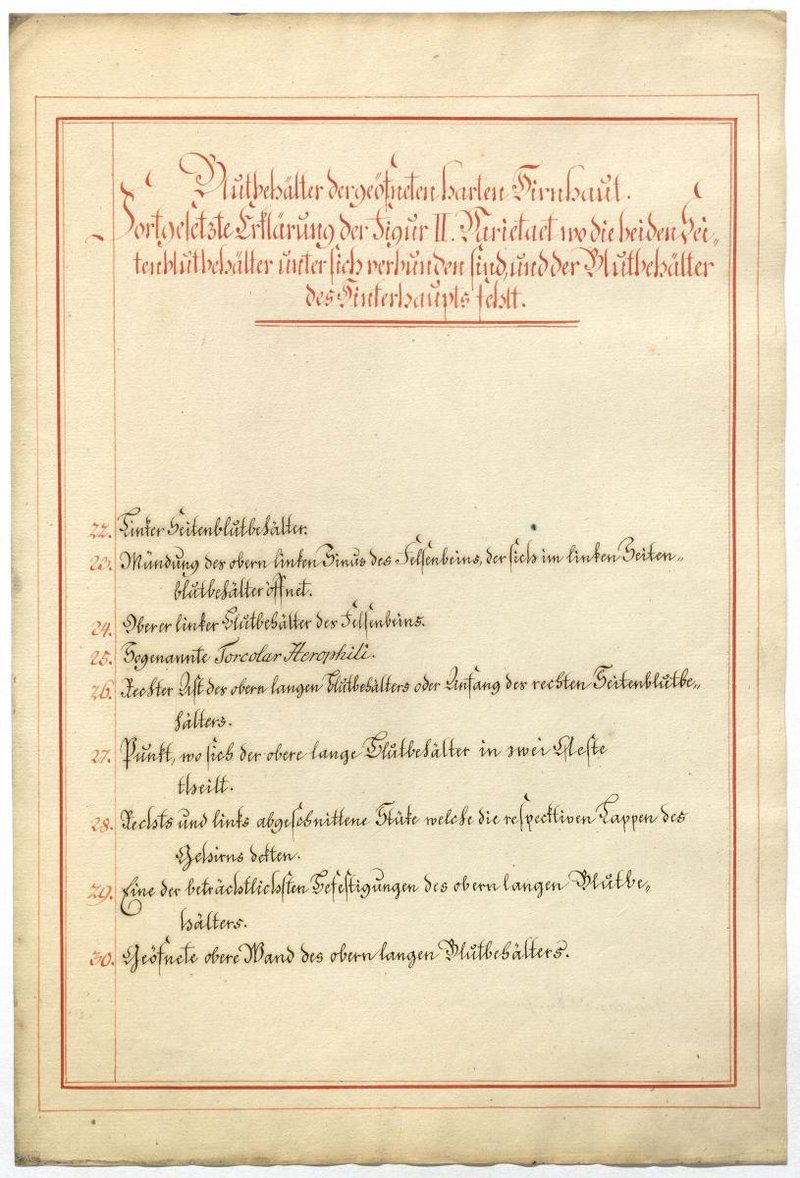 Blutbehälter der geöfneten harten Hirnhaut.
Fortgesetzte Erklärung der Figur II. Varietaet wo die beiden Sei„
tenblutbehälter unter sich verbunden sind, und der Blutbehälter
des Hinterhaupts fehlt.
22. Linker Seitenblutbehälter.
23. Mündung des obern linken Sinus des Felsenbeins, der sich im linken Seiten„
blutbehälter öffnet.
24. Oberer linker Blutbehälter des Felsenbeins.
25. Sogenannte Torcolar Herophili.
26. Rechter Ast des obern langen Blutbehälters oder Anfang des rechten Seitenblutbe„
hälters.
27. Punkt, wo sich der obere lange Blutbehälter in zwei Aeste
theilt.
28. Rechts und links abgeschnittene Stüke welche die respecktiven Lappen des
Gehirns dekten.
29. Eine der beträchtlichsten Befestigungen des obern langen Blutbe„
hälters.
30. Geöfnete obere Wand des obern langen Blutbehälters.